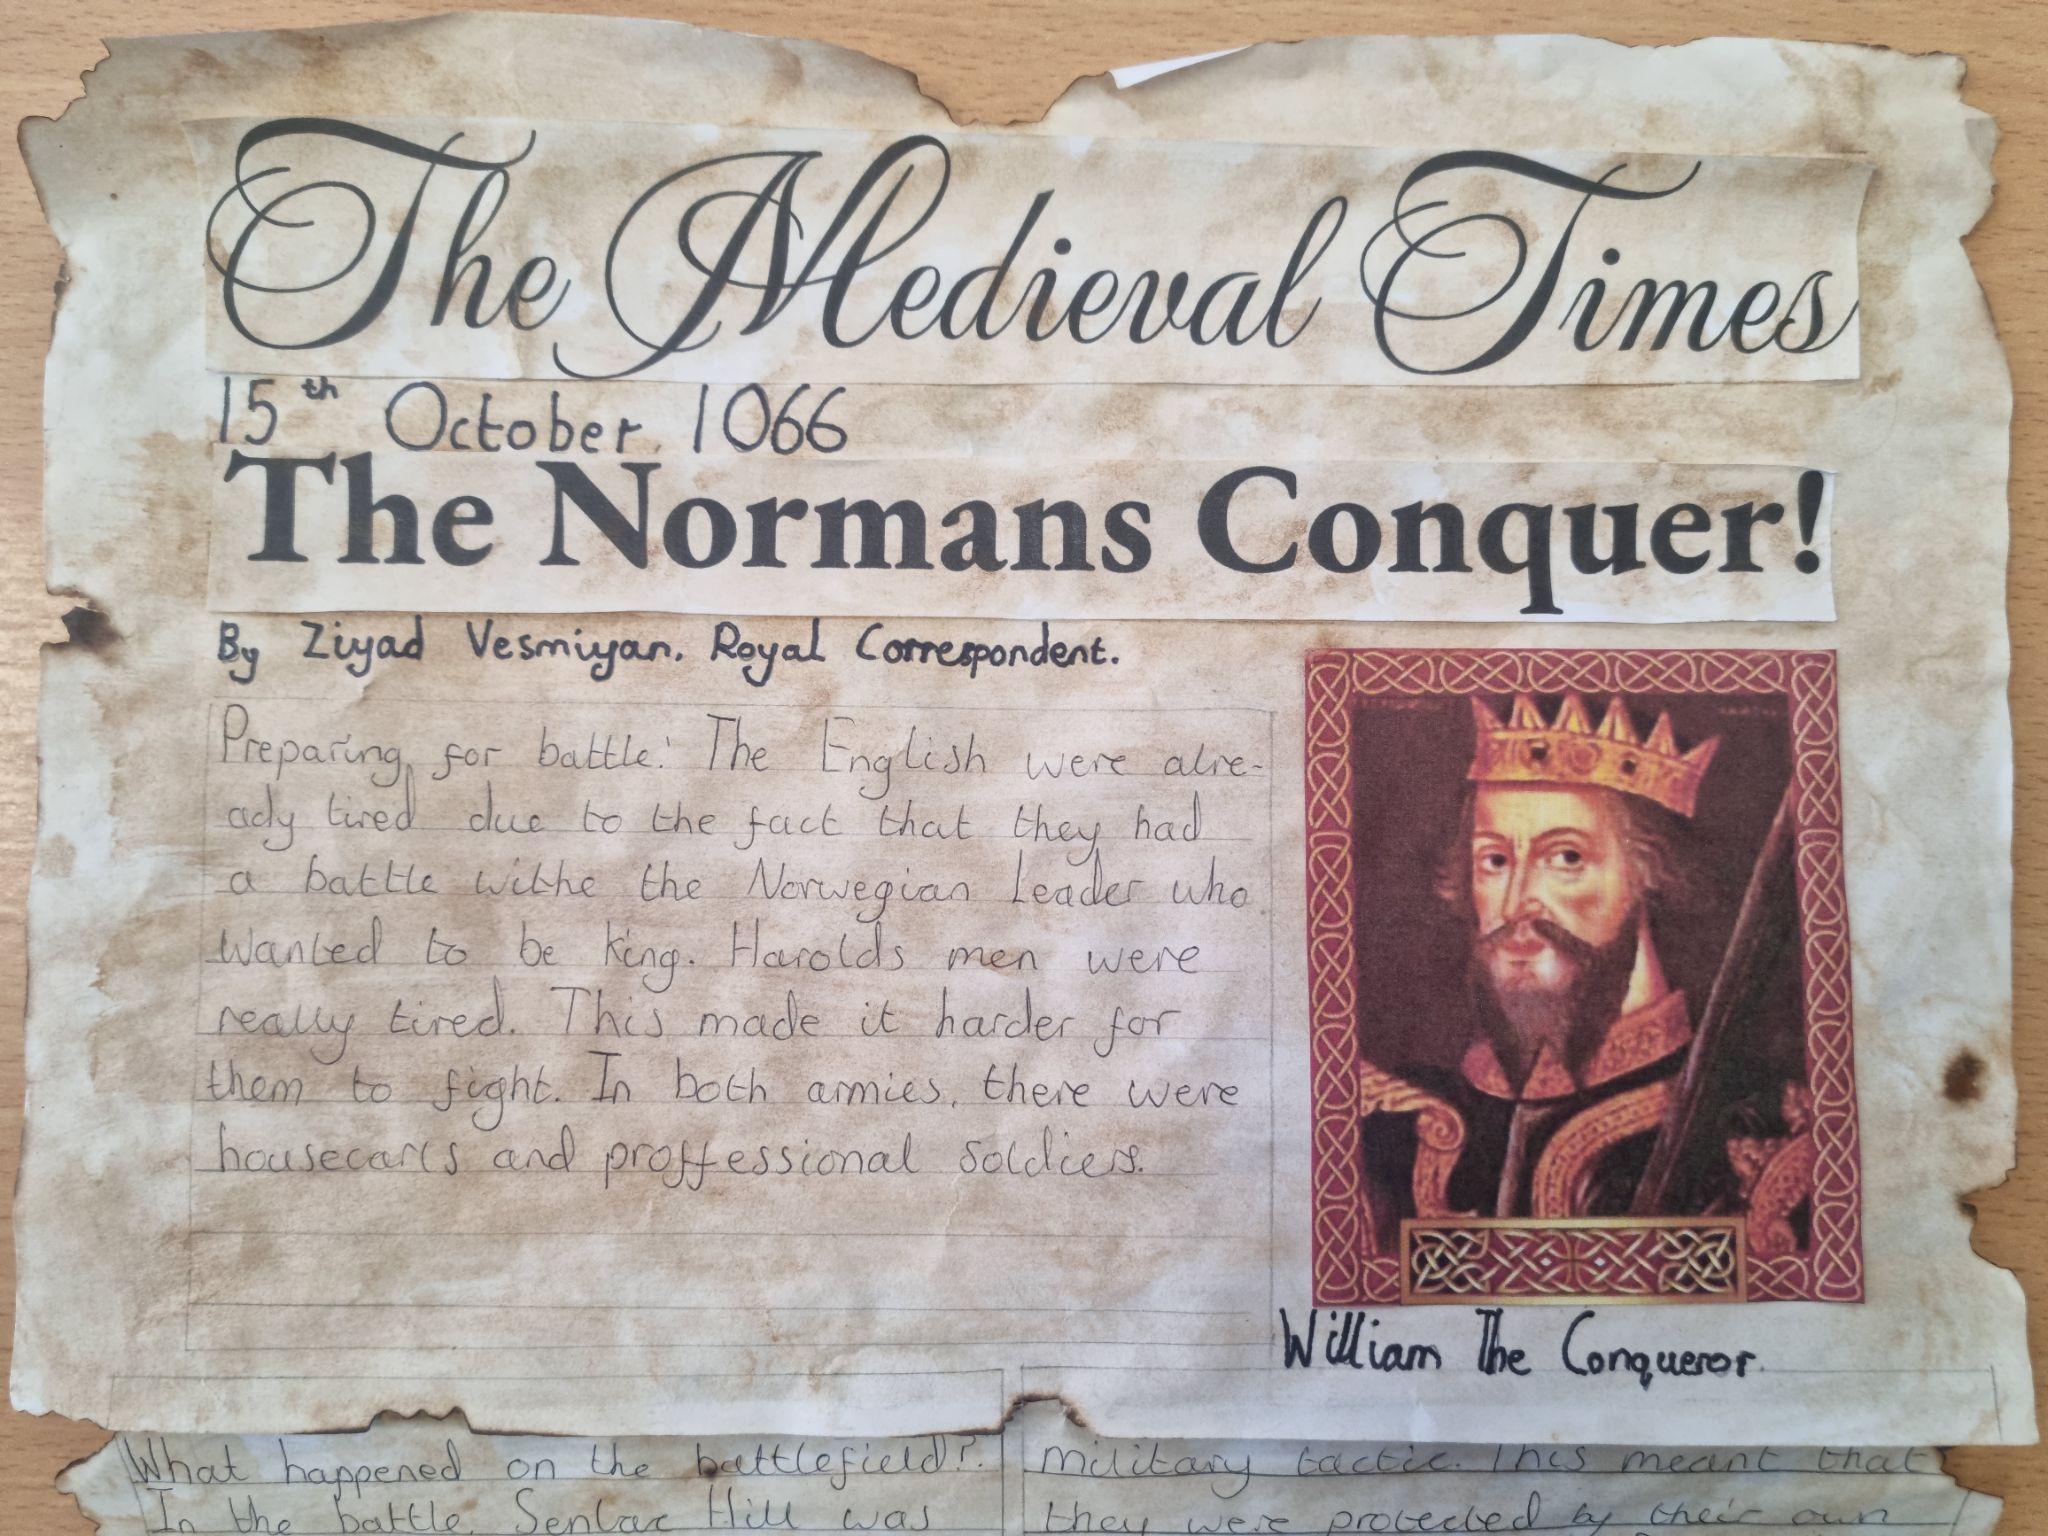 The Medieval Times
15th October, 1066
The Normans Conquer!
By Ziyad Vesmiyan. Royal Correspondent.
Preparing for battle! The English were alre-
ady tired due to the fact that they had
a battle withe the Norwegian Leader who
wanted to be king. Harolds men were
really tired. This made it harder for
them to fight. In both armies, there were
housecarls and proffessional soldiers.
William The Conqueror.
What happened on the battlefield?
In the battle, Senlac Hill was
military tactic. This meant that
they were protected by their own